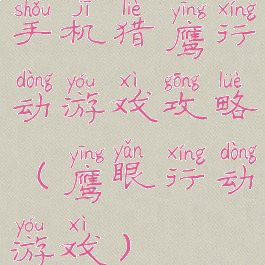 shǒu jī liè yīng xíng
手机猎鹰行
dòng yóu xì gōng lüè
动游戏攻略
yīng yǎn xíng dòng
（鹰眼行动
yóu xì
游戏）